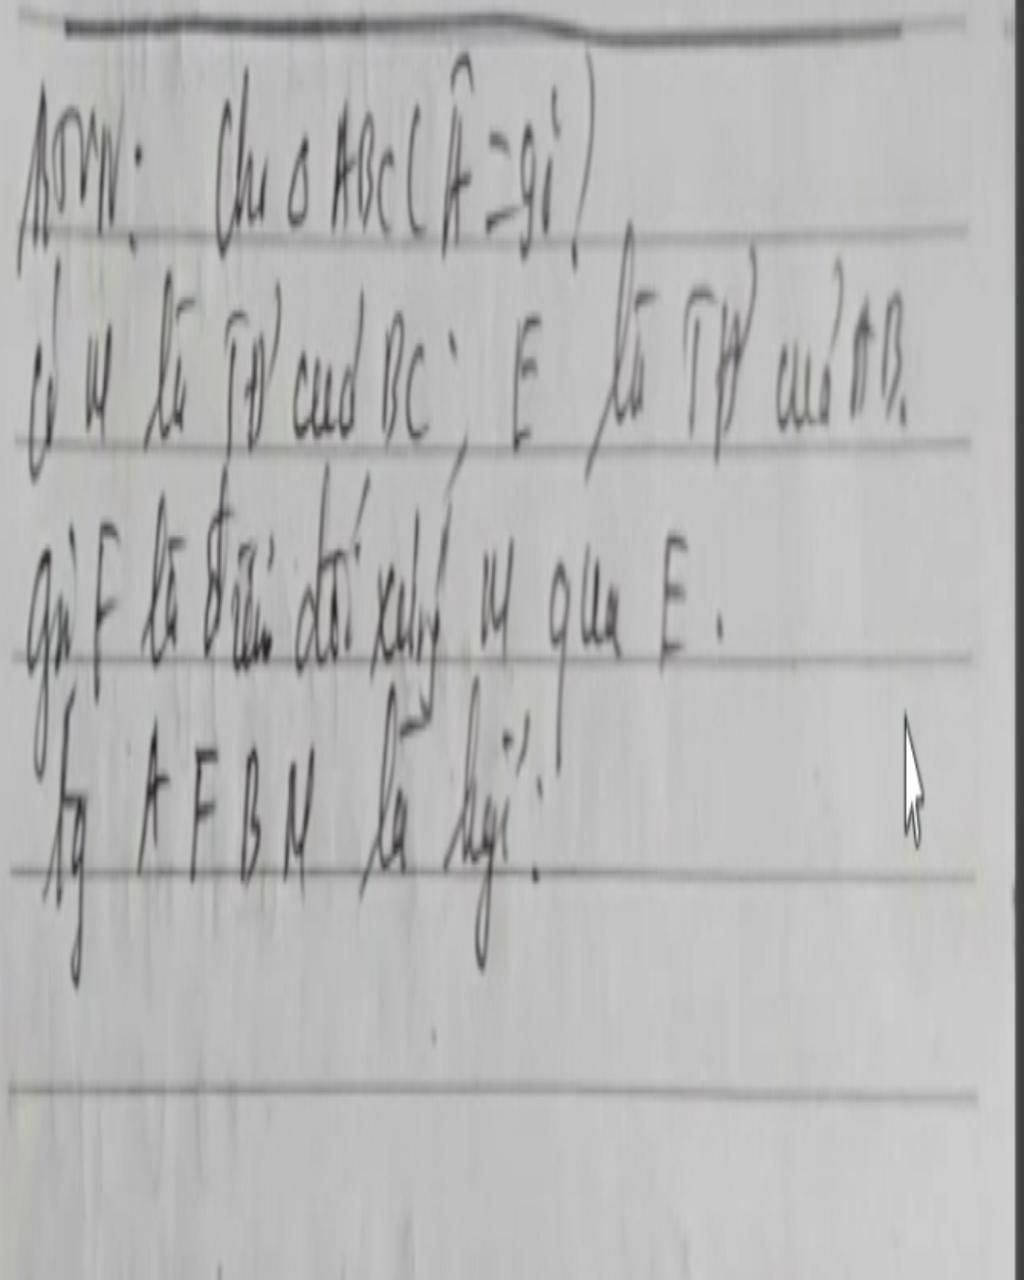 BTVN: Cho Δ ABC (Â = 90°)
có M là TĐ' của BC; E là TĐ' của AB.
gọi F là điểm đối xứng M qua E.
tg AFBM là hgì?